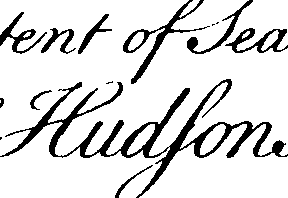 tent of Sea
Hudſons